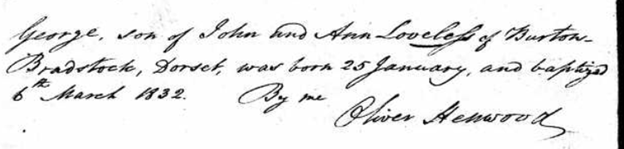 George, son of John and Ann Loveless of Burton-
Bradstock, Dorset, was born 25 January, and baptized
6th March 1832. By me
Oliver Henwood